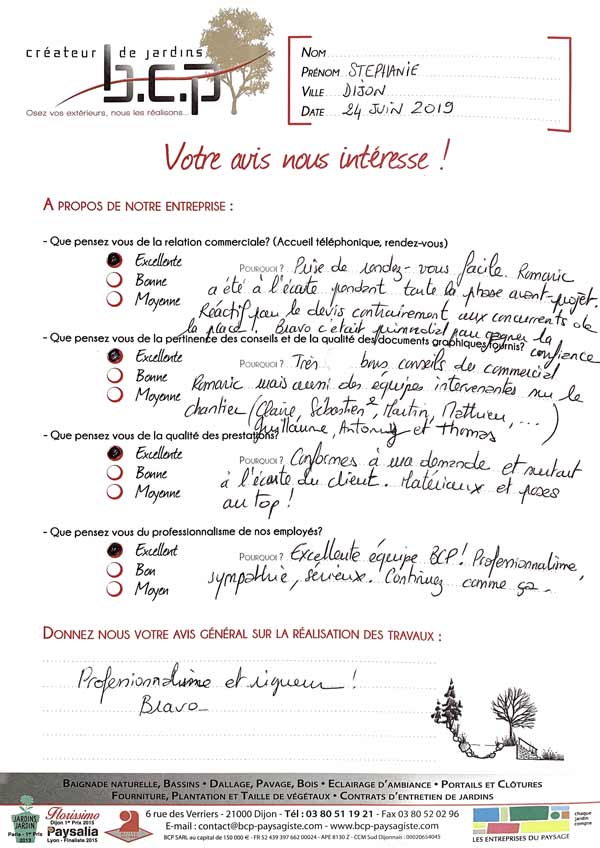 créateur de jardins
b.c.p
Osez vos extérieurs, nous les réalisons...
NOM
PRÉNOM STEPHANIE
VILLE DIJON
DATE 24 JUIN 2019
Votre avis nous intéresse !
A PROPOS DE NOTRE ENTREPRISE :
- Que pensez vous de la relation commerciale? (Accueil téléphonique, rendez-vous)
Excellente
Bonne
Moyenne
POURQUOI ? Prise de rendez-vous facile. Romaric
a été à l'écoute pendant toute la phase avant-projet.
Réactif pour le devis contrairement aux concurrents de
la place ! Bravo c'était primordial pour gagner la
confiance
- Que pensez vous de la pertinence des conseils et de la qualité des documents graphiques fournis?
Excellente
Bonne
Moyenne
POURQUOI ? Très bons conseils du commercial
Romaric mais aussi des équipes intervenantes sur le
chantier (Claire, Sébastien, Martin, Mathieu, ...)
Guillaume, Antony et Thomas
- Que pensez vous de la qualité des prestations?
Excellente
Bonne
Moyenne
POURQUOI ? Conformes à ma demande et surtout
à l'écoute du client. Matériaux et poses
au top !
- Que pensez vous du professionnalisme de nos employés?
Excellent
Bon
Moyen
POURQUOI ? Excellente équipe BCP ! Professionnalisme,
sympathie, sérieux. Continuez comme ça.
DONNEZ NOUS VOTRE AVIS GÉNÉRAL SUR LA RÉALISATION DES TRAVAUX :
Professionnalisme et rigueur !
Bravo
BAIGNADE NATURELLE, BASSINS • DALLAGE, PAVAGE, BOIS • ECLAIRAGE D'AMBIANCE • PORTAILS ET CLÔTURES
FOURNITURE, PLANTATION ET TAILLE DE VÉGÉTAUX • CONTRATS D'ENTRETIEN DE JARDINS
JARDINS JARDIN
Paris - 1er Prix
2013
Florissimo
Dijon 1er Prix 2015
Paysalia
Lyon - Finaliste 2015
6 rue des Verriers - 21000 Dijon - Tél : 03 80 51 19 21 - Fax 03 80 52 02 96
E-mail : contact@bcp-paysagiste.com - www.bcp-paysagiste.com
BCP SARL au capital de 150 000 € - FR 52 439 397 662 00024 - APE 8130 Z - CCM Sud Dijonnais : 00020654045
chaque
jardin
compte
LES ENTREPRISES DU PAYSAGE